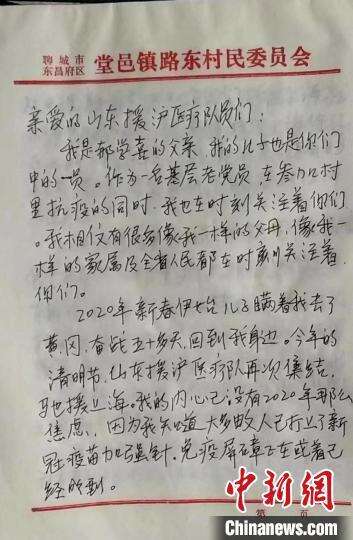 聊城市
东昌府区 堂邑镇路东村民委员会
亲爱的山东援沪医疗队员们：
我是郝学喜的父亲，我的儿子也是你们
中的一员。作为一名基层老党员，在参加村
里抗疫的同时，我也在时刻关注着你们
。我相信有很多像我一样的父母，像我一
样的家属及全省人民都在时刻关注着
你们。
2020年新春伊始儿子瞒着我去了
黄冈，奋战五十多天，回到我身边。今年的
清明节，山东援沪医疗队再次集结，
驰援上海。我的内心已没有2020年那么
焦虑，因为我知道大多数人已打上了新
冠疫苗加强针，免疫屏障正在或者已
经的到。
第 页
中新网
Chinanews.com